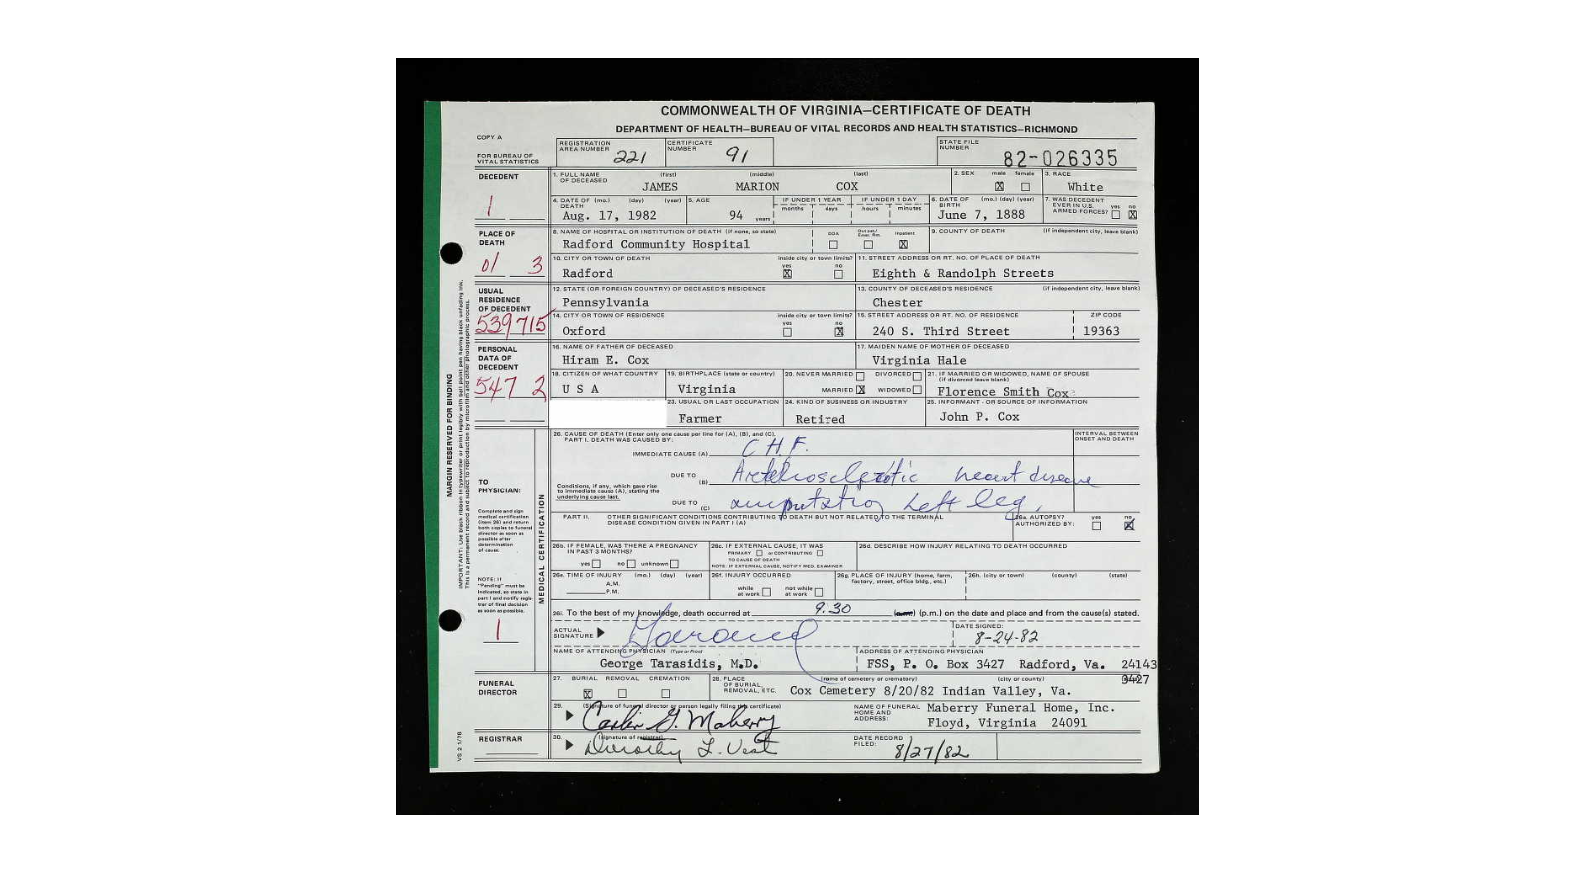 COMMONWEALTH OF VIRGINIA—CERTIFICATE OF DEATH
DEPARTMENT OF HEALTH—BUREAU OF VITAL RECORDS AND HEALTH STATISTICS—RICHMOND
COPY A
FOR BUREAU OF VITAL STATISTICS
REGISTRATION AREA NUMBER 221
CERTIFICATE NUMBER 91
STATE FILE NUMBER 82-026335
DECEDENT
1
1. FULL NAME OF DECEASED (first) (middle) (last)
JAMES MARION COX
2. SEX male ☒ female ☐
3. RACE White
4. DATE OF DEATH (mo.) (day) (year) Aug. 17, 1982
5. AGE 94 years
IF UNDER 1 YEAR months days
IF UNDER 1 DAY hours minutes
6. DATE OF BIRTH (mo.) (day) (year) June 7, 1888
7. WAS DECEDENT EVER IN U.S. ARMED FORCES? yes ☐ no ☒
PLACE OF DEATH
01 3
8. NAME OF HOSPITAL OR INSTITUTION OF DEATH (if none, so state)
Radford Community Hospital
DOA ☐ ☐ Inpatient ☒
9. COUNTY OF DEATH (if independent city, leave blank)
10. CITY OR TOWN OF DEATH Radford
inside city or town limits? yes ☒ no ☐
11. STREET ADDRESS OR RT. NO. OF PLACE OF DEATH
Eighth & Randolph Streets
USUAL RESIDENCE OF DECEDENT
539 715
12. STATE (OR FOREIGN COUNTRY) OF DECEASED'S RESIDENCE
Pennsylvania
13. COUNTY OF DECEASED'S RESIDENCE (if independent city, leave blank)
Chester
14. CITY OR TOWN OF RESIDENCE Oxford
inside city or town limits? yes ☐ no ☒
15. STREET ADDRESS OR RT. NO. OF RESIDENCE
240 S. Third Street
ZIP CODE 19363
PERSONAL DATA OF DECEDENT
547 2
16. NAME OF FATHER OF DECEASED
Hiram E. Cox
17. MAIDEN NAME OF MOTHER OF DECEASED
Virginia Hale
18. CITIZEN OF WHAT COUNTRY U S A
19. BIRTHPLACE (state or country) Virginia
20. NEVER MARRIED ☐ DIVORCED ☐
MARRIED ☒ WIDOWED ☐
21. IF MARRIED OR WIDOWED, NAME OF SPOUSE (if divorced leave blank)
Florence Smith Cox
23. USUAL OR LAST OCCUPATION Farmer
24. KIND OF BUSINESS OR INDUSTRY Retired
25. INFORMANT - OR SOURCE OF INFORMATION
John P. Cox
MARGIN RESERVED FOR BINDING
MEDICAL CERTIFICATION
TO PHYSICIAN:
Complete and sign medical certification (item 26) and return both copies to funeral director as soon as possible after determination of cause.
NOTE: If "Pending" must be indicated, so state in part I and notify registrar of final decision as soon as possible.
1
26. CAUSE OF DEATH (Enter only one cause per line for (A), (B), and (C).
PART I. DEATH WAS CAUSED BY:
INTERVAL BETWEEN ONSET AND DEATH
IMMEDIATE CAUSE (A) C H F.
DUE TO (B) Arteriosclerotic heart disease
Conditions, if any, which gave rise to immediate cause (A), stating the underlying cause last.
DUE TO (C) amputation Left leg.
PART II. OTHER SIGNIFICANT CONDITIONS CONTRIBUTING TO DEATH BUT NOT RELATED TO THE TERMINAL DISEASE CONDITION GIVEN IN PART I (A)
26a. AUTOPSY? AUTHORIZED BY: yes ☐ no ☒
26b. IF FEMALE, WAS THERE A PREGNANCY IN PAST 3 MONTHS?
yes ☐ no ☐ unknown ☐
26c. IF EXTERNAL CAUSE, IT WAS
PRIMARY ☐ or CONTRIBUTING ☐
TO CAUSE OF DEATH
NOTE: IF EXTERNAL CAUSE, NOTIFY MED. EXAMINER
26d. DESCRIBE HOW INJURY RELATING TO DEATH OCCURRED
26e. TIME OF INJURY (mo.) (day) (year)
A.M.
P.M.
26f. INJURY OCCURRED
while at work ☐ not while at work ☐
26g. PLACE OF INJURY (home, farm, factory, street, office bldg., etc.)
26h. (city or town) (county) (state)
26i. To the best of my knowledge, death occurred at 9.30 (a.m.) (p.m.) on the date and place and from the cause(s) stated.
ACTUAL SIGNATURE
DATE SIGNED: 8-24-82
NAME OF ATTENDING PHYSICIAN (Type or Print)
George Tarasidis, M.D.
ADDRESS OF ATTENDING PHYSICIAN
FSS, P. O. Box 3427 Radford, Va. 24143
3427
FUNERAL DIRECTOR
27. BURIAL ☒ REMOVAL ☐ CREMATION ☐
28. PLACE OF BURIAL, REMOVAL, ETC. (name of cemetery or crematory) (city or county)
Cox Cemetery 8/20/82 Indian Valley, Va.
29. (Signature of funeral director or person legally filing this certificate)
Maberry
NAME OF FUNERAL HOME AND ADDRESS:
Maberry Funeral Home, Inc.
Floyd, Virginia 24091
REGISTRAR
30. (signature of registrar)
Dorothy L. Vest
DATE RECORD FILED: 8/27/82
VS 2 1/78